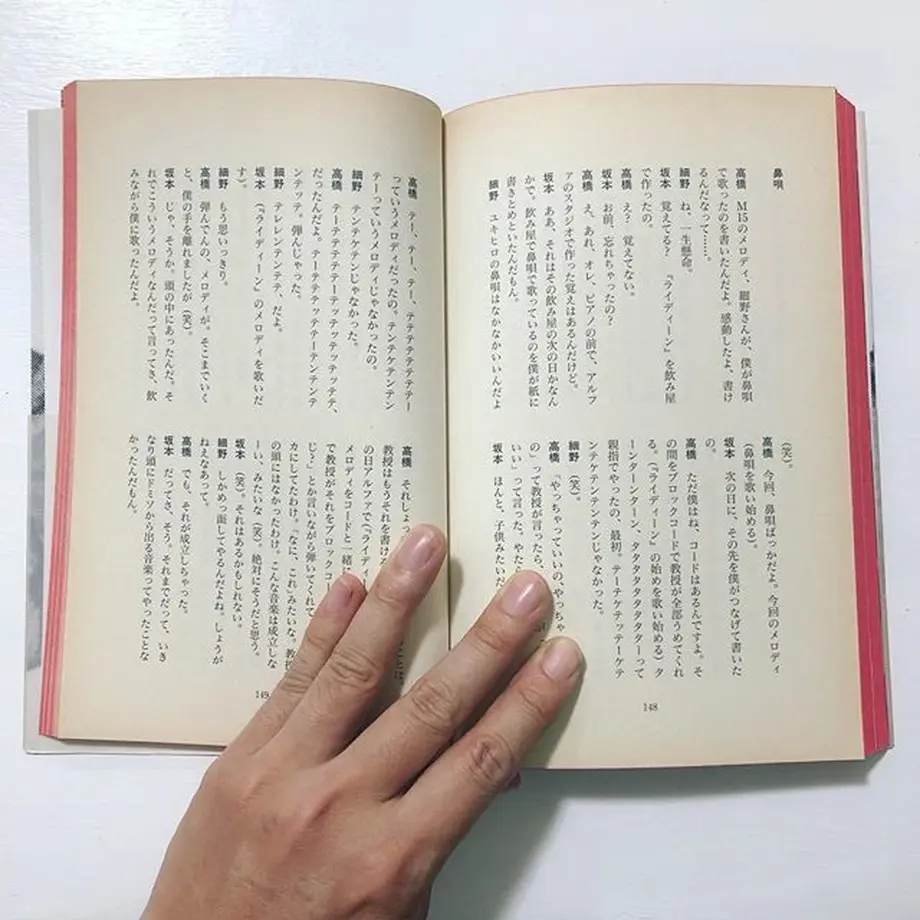 鼻唄
高橋　M15のメロディ、細野さんが、僕が鼻唄
で歌ったのを書いたんだよ。感動したよ、書け
るんだなって……。
細野　ね、一生懸命。
坂本　覚えてる?　『ライディーン』を飲み屋
で作ったの。
高橋　え?　覚えてない。
坂本　お前、忘れちゃったの?
高橋　え、あれ、オレ、ピアノの前で、アルフ
ァのスタジオで作った覚えはあるんだけど。
坂本　ああ、それはその飲み屋の次の日かなん
かで。飲み屋で鼻唄で歌っているのを僕が紙に
書きとめといたんだもん。
細野　ユキヒロの鼻唄はなかなかいいんだよ
(笑)。
高橋　今回、鼻唄ばっかだよ。今回のメロディ
(鼻唄を歌い始める)。
坂本　次の日に、その先を僕がつなげて書いた
の。
高橋　ただ僕はね、コードはあるんですよ。そ
の間をブロックコードで教授が全部うめてくれ
る。(『ライディーン』の始めを歌い始める)タ
ーンターンターン、タタタタタタターって
親指でやったの、最初。テーテケテッテーテケテ
ンテケテンテンテンじゃなかった。
細野　(笑)。
高橋　「やっちゃっていいの、やっちゃ
の」って教授が言ったら、
いい」って言った。やた
坂本　ほんと、子供みたいだ
148
高橋　テー、テー、テー、テテテテテテテー
っていうメロディだったの。テンテケテンテン
テーっていうメロディじゃなかったの。
細野　テンテケテンじゃなかった。
高橋　テーテテテテテーテッテッテッテテ、
だったんだよ。テーテテテッテテーテンテン
ンテッテ。弾んじゃった。
細野　テレレンテンテテ、だよ。
坂本　(『ライディーン』のメロディを歌いだ
す)。
細野　もう思いっきり。
高橋　弾んでんの、メロディが。そこまでいく
と、僕の手を離れましたが(笑)。
坂本　じゃ、そうか。頭の中にあったんだ。そ
れでこういうメロディなんだって言ってさ、飲
みながら僕に歌ったんだよ。
高橋　それしょっ
ことは、
教授はもうそれを書ける
の日アルファで『ライディー
メロディをコードと一緒に
で教授がそれをブロックコー
じ?」とか言いながら弾いてくれて
カにしてたわけ。「なに、これ」みたいな。教授
の頭にはなかったわけ。こんな音楽は成立しな
ーい、みたいな(笑)。絶対にそうだと思う。
坂本　(笑)。それはあるかもしれない。
細野　しかめっ面してやるんだよね。しょうが
ねえなあって。
高橋　でも、それが成立しちゃった。
坂本　だってさ、そう。それまでだって、いき
なり頭にドミソから出る音楽ってやったことな
かったんだもん。
149